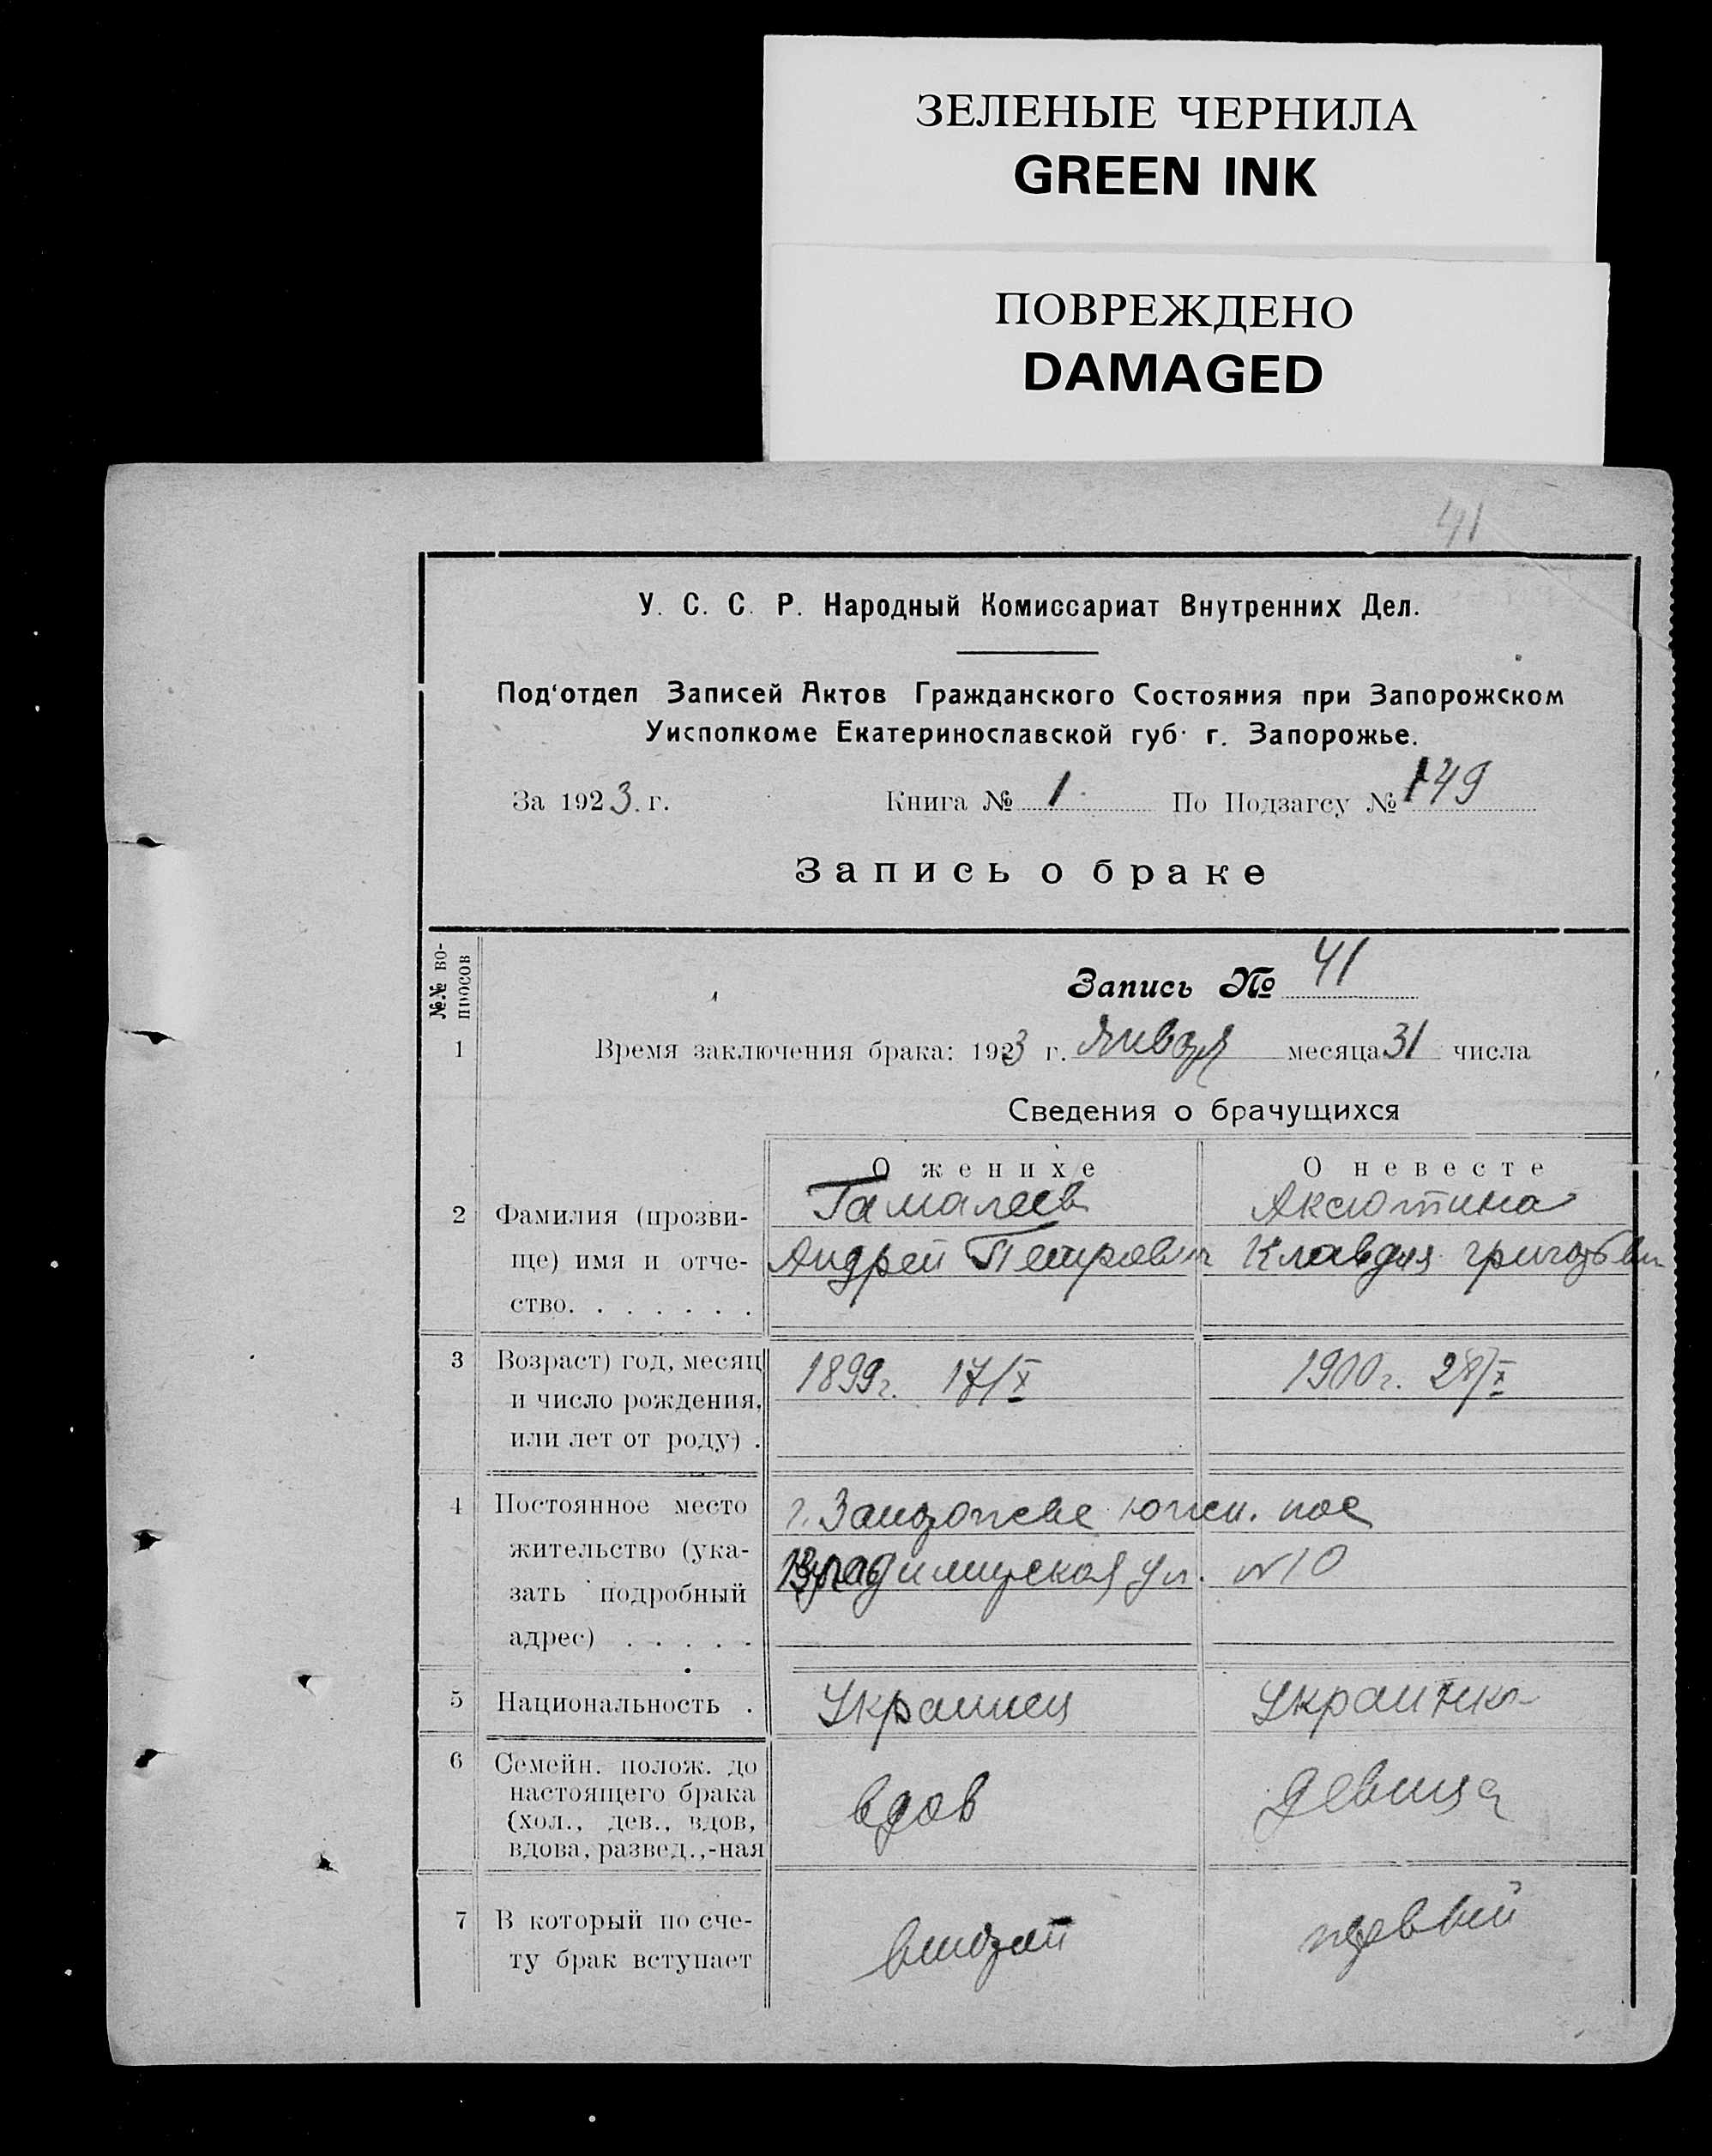 ЗЕЛЕНЫЕ ЧЕРНИЛА
GREEN INK
ПОВРЕЖДЕНО
DAMAGED
41
У. С. С. Р. Народный Комиссариат Внутренних Дел.
Под'отдел Записей Актов Гражданского Состояния при Запорожском
Уисполкоме Екатеринославской губ. г. Запорожье.
За 1923. г. Книга № 1. По Подзагсу № 149
Запись о браке
№№ вопросов
Запись № 41
1 Время заключения брака: 1923 г. Января месяца 31 числа
Сведения о брачущихся
О женихе О невесте
2 Фамилия (прозви- Гамалеев Аксютина
ще) имя и отче- Андрей Петрович Клавдия Григорьевн
ство. . . . . . .
3 Возраст) год, месяц 1899 г. 17/X 1900 г. 28/X
и число рождения,
или лет от роду) .
4 Постоянное место г. Запорожье южн. пос
жительство (ука- Владимирская ул. №10
зать подробный
адрес) . . . . .
5 Национальность . Украинец Украинка
6 Семейн. полож. до
настоящего брака
(хол., дев., вдов, вдов девица
вдова, развед.,-ная
7 В который по сче- второй первый
ту брак вступает